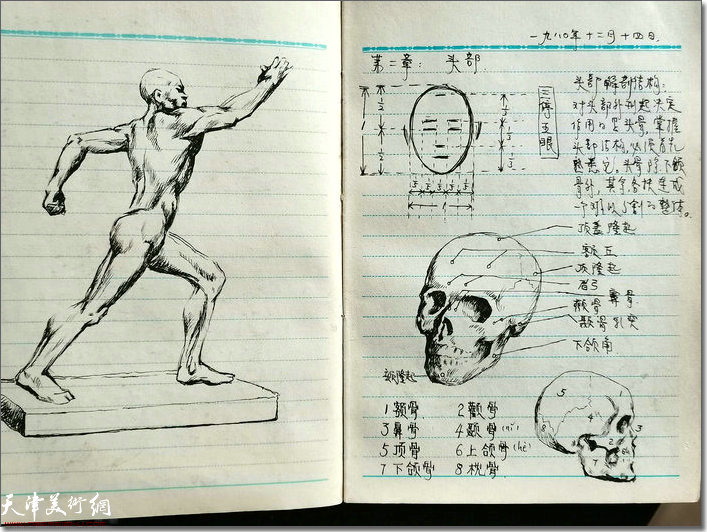 一九八〇年十二月十四日
第二章: 头部
三停五眼
头部解剖结构:
对头部外形起决定
作用的是头骨,掌握
头部结构,必须首先
熟悉它,头骨除下颌
骨外,其余各块连成
一个难以分割的整体。
顶盖隆起
额丘
顶隆起
眉弓
鼻骨
颧骨
颞骨乳突
下颌角
颏隆起
1 额骨 2 颧骨
3 鼻骨 4 颞骨(niè)
5 顶骨 6 上颌骨(hé)
7 下颌骨 8 枕骨
天津美術網